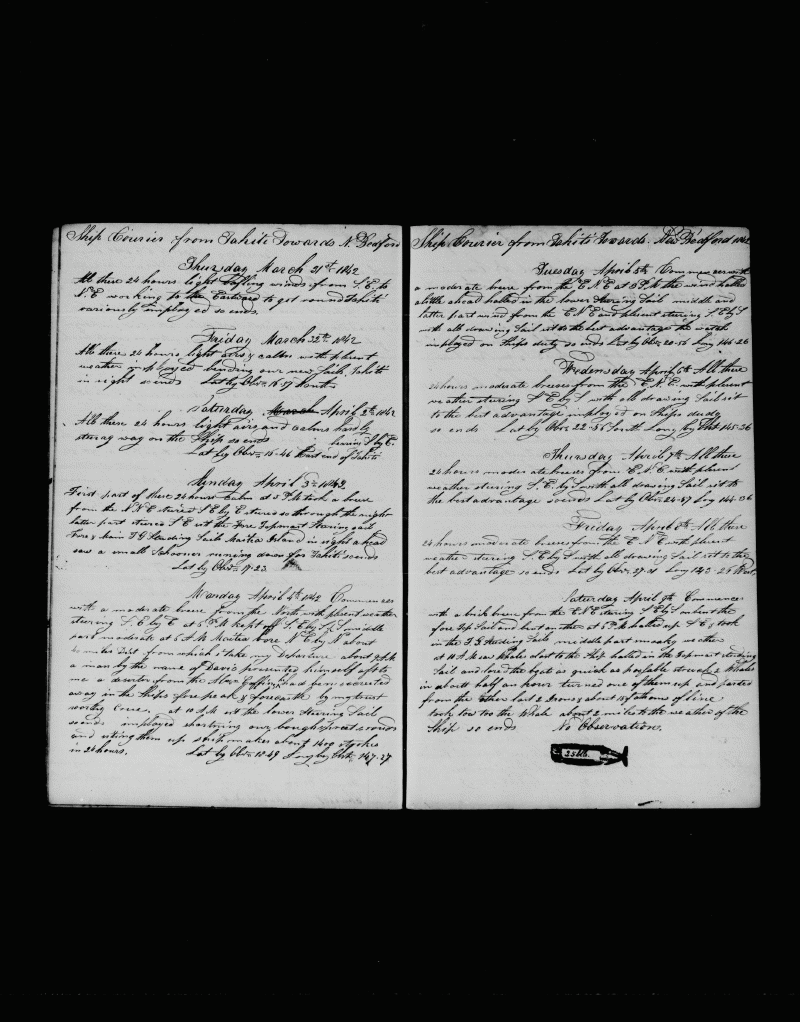 Ship Courier from Tahiti Towards N. Bedford
Thursday March 31st 1842
All these 24 hours light baffling winds from S.E. to
N.E working to the Eastward to get round Tahiti
variously employed so ends
Friday March 32th 1842
All these 24 hours light airs & calms with plesent
weather imployed bending our new Sails, Tahiti
in sight so ends Lat by Obsn 16.57 South
Saturday March April 2th 1842
All these 24 hours light airs and calms hardly
steerag way on the Ship so ends bearing S by E.
Lat by Obsn 16.46 East end of Tahiti
Sunday April 3th 1842
First part of these 24 hours Calm at 5 P.M took a breeze
from the N.N.E stered S.E by E stered so through the night
latter part stered S E set the Fore Topmast Stearing sail
Fore & Main T G Studding Sails Maitia Island in sight ahead
saw a small Schooner runing down for Tahiti so ends
Lat by Obsn 17.23
Monday April 4th 1842 Commences
with a moderate breeze from the North with plesent weather
steering S.E by E at 5 P.M kept off S.E by S middle
part moderate at 5 A.M Maitia bore N E by N about
miles Dist from which I take my Departure about 8 A.M
a man by the name of Davis presented himself aft to
me a deserter from the had been secreted
away in the Ships fore peak & forecastle by my trust
worthy Crew. at 10 A.M set the lower Steering Sail
so ends imployed shortning our boughspreet srouds
and seting them up Ship makes about 1400 stroks
in 24 hours. Lat by Obsn 18.49 Long by Chr 147.37
Ship Courier from Tahiti Towards New Bedford 1842
Tuesday April 5th Commences with
a moderate breeze from the E N E at 8 P.M the wind halled
a little ahead halled in the lower Stering Sail middle and
latter part wind from the E N E and plesent stering S E by S
with all drawing Sail set to the best advantage the watch
imployed on Ships duty so ends Lat by Obsn 20.56 Long 146.26
Wedensday April 6th All these
24 hours moderate breeses from the E.N.E. with plesent
weather stering S E by S with all drawing Sail set
to the best advantage imployed on Ships duty
so ends Lat by Obsn 22.56 South Long by Chr 145.36
Thursday April 7th All these
24 hours moderate breeses from E.N.E with plesent
weather stering S.E. by S with all drawing Sail set to
the best advantage so ends Lat by Obsn 24.57 Long 144.36
Friday April 8th All these
24 hours moderate breeses from the E.N.E with plesent
weather stering S E by S with all drawing Sail set to the
best advantage so ends Lat by Obsn 27.01 Long 143.28 West.
Saturday April 9th Commences
with a brisk breeze from the E.N.E stering S E by S unbent the
fore Top Sail and bent another at 5 P.M halled up S E & took
in the T G Studing Sails middle part muskey weather
at 10 A.M saw Whales close to the Ship halled in the Topmast studding
Sail and lored the boats as quick as possable strock 2 Whales
in about half an hour turned one of them up and parted
from the other lost 2 Irons & about 18 fatoms of line.
took tow too the Whale about 2 mile to the weather of the
Ship so ends No Observation.
25 bls.